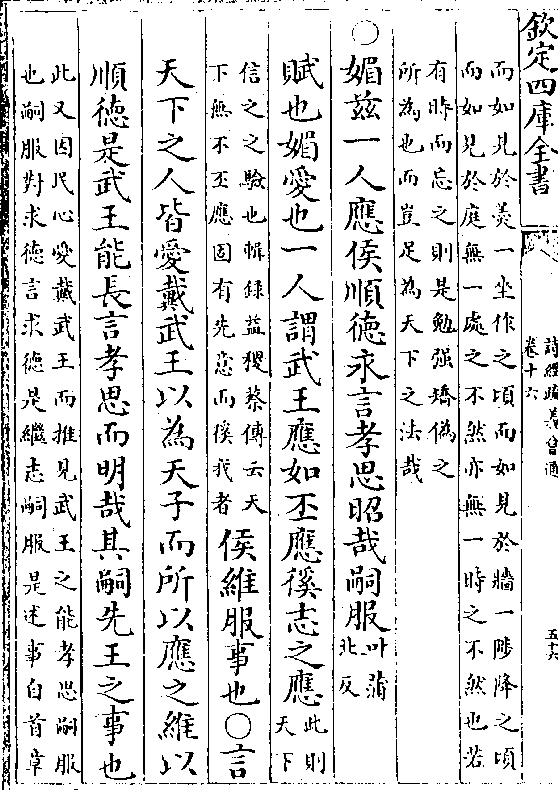 欽定四庫全書
詩經疏義會通
卷十六
五十六
而如見於羹一坐作之頃而如見於牆一陟降之頃
而如見於庭無一處之不然亦無一時之不然也若
有時而忘之則是勉强矯偽之
所為也而豈足為天下之法哉
○媚兹一人應侯順徳永言孝思昭哉嗣服叶蒲
北反
賦也媚愛也一人謂武王應如丕應徯志之應此則
天下
信之之驗也輯録益稷蔡傳云天
下無不丕應固有先意而徯我者
侯維服事也○言
天下之人皆愛戴武王以為天子而所以應之維以
順徳是武王能長言孝思而明哉其嗣先王之事也
此又因民心愛戴武王而推見武王之能孝思嗣服
也嗣服對求徳言求徳是繼志嗣服是述事自首章